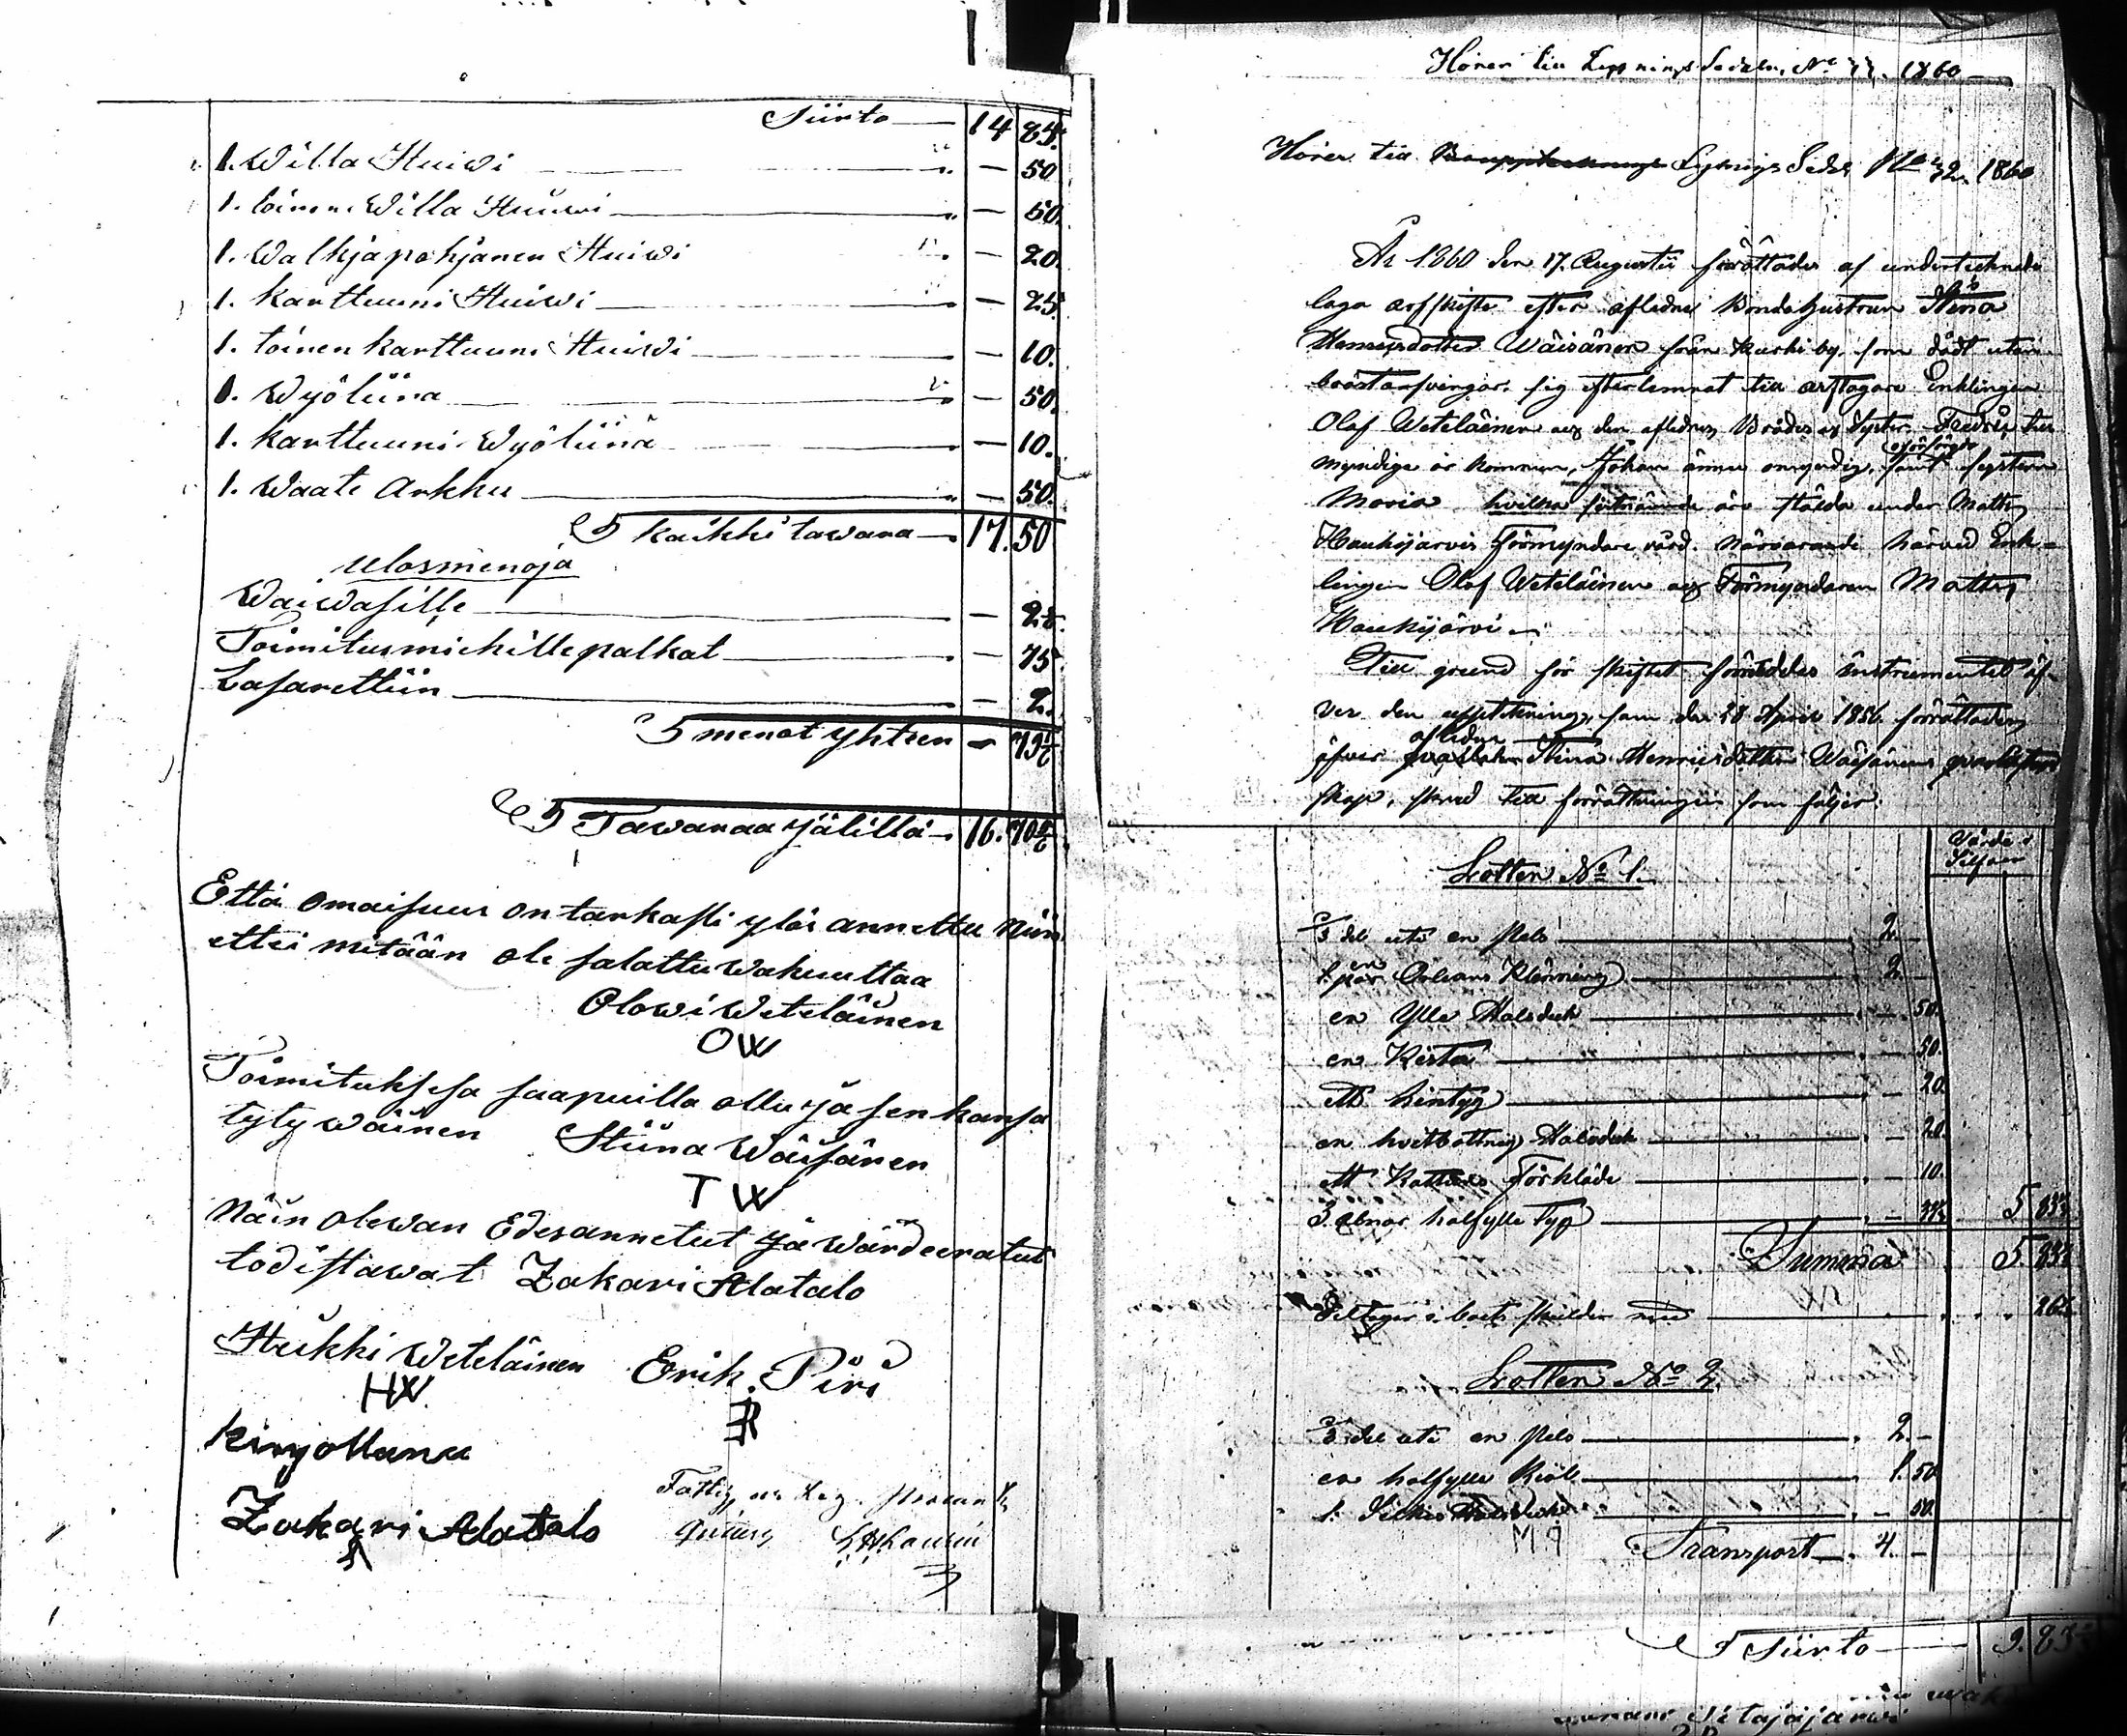 Siirto 14 85.
1. Willa Huiwi " — 50
1. toinen Willa Huiwi " — 50.
1. Walkjapohjanen Huiwi " — 20.
1. karttuuni Huiwi " — 25.
1. toinen karttuuni Huiwi — 10.
1. Wyöliina " — 50.
1. karttuuni Wyöliina — 10.
1. Waate Arkku " — 50.
S kaikki tawara 17. 50
Ulosmenoja
Waiwasille — 2
Toimitusmiehille palkat — 75.
Lasarettiin — 2.
S menot yhteen — 79
S Tawaraa jälillä 16. 70
Että omaisuus on tarkasti ylös annettu niin
ettei mitään ole salattu wakuuttaa
Olowi Weteläinen
OW
Toimituksesa saapuilla ollu ja sen kansa
tytywäinen Stiina Wäisänen
T W
Näin olewan Edesannetut ja wärdeeratut
todistawat Zakari Alatalo
Heikki Weteläinen Erik. Piri
HW.
kirjoittanu
Zakari Alatalo
Hörer till Lysnings Sedeln No 1860
Hörer till Lysnings Sedel No 32. 1860
År 1860 den 17. Augustii förrättades af undertecknade
laga arfskifte efter aflednе Bondehustrun Stina
Henricsdotter Wäisänen från by, som dödt utan
bröstarfvingar, sig efterlemnat till arftagare Enklingen
Olof Weteläinen och den aflednes Broder och Syster, Fredric till
myndiga år kommen, Johan ännu omyndig, samt system
Maria hvilka äro stälda under Matts
Haukijärvis Förmyndare vård. närvarande härvid Enk-
lingen Olof Weteläinen och Förmyndaren Matts
Haukijärvi.
Till grund för skiftet företeddes instrumentet öf-
ver den uppteckning, som den 28 April 1856 förrättades
öfver afledne Stina Henricsdotter Wäisänens qvarlåten
skap, skred till förrättningen som följer.
Värde i
Silfver
Lotten No 1.
del uti en Pels 2. —
1. par Orleans Klädning 2. —
en Ylle Halsduk — 50.
en Kista — 50.
ett Lintyg — 20.
en hvitbottnig Halsduk — 20.
ett Kattuns Förkläde — 10.
3. alnar halfylle Tyg — 5. 83
Summa 5. 83
Deltager i boets skulder med 26
Lotten No 2.
del uti en Pels 2. —
en halfylle Kiol 1. 50
1. Silkes Halsduk — 50.
Transport 4. —
S Siirto 9. 83